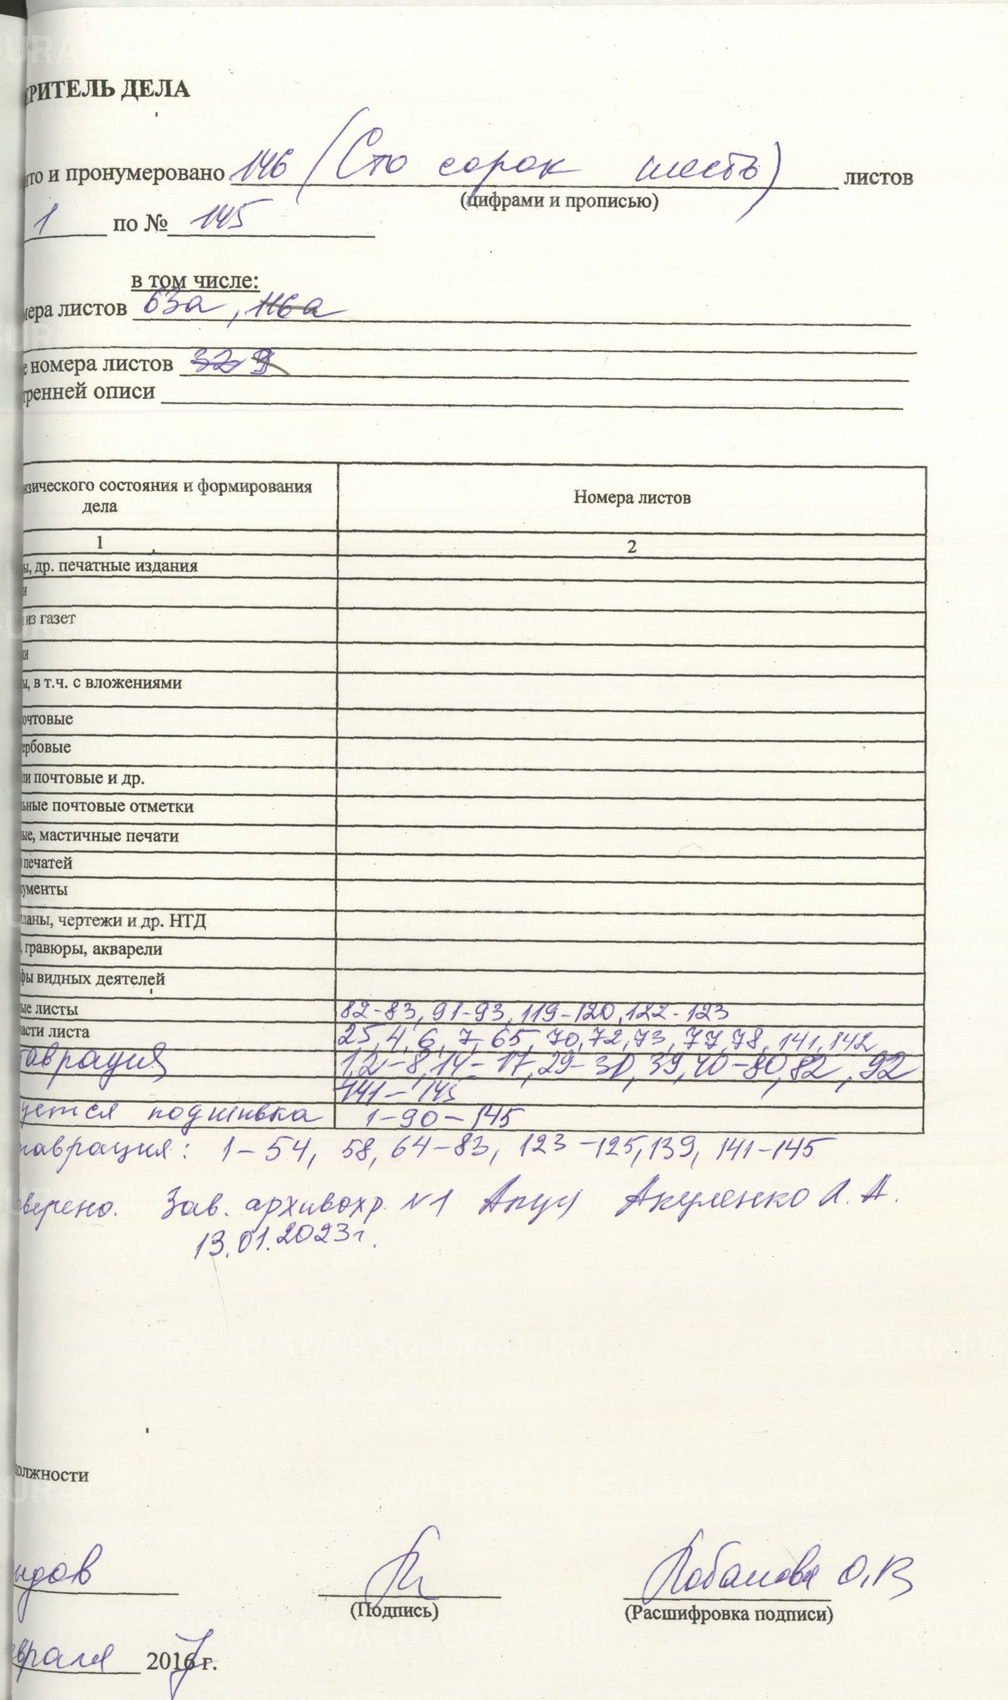 ЕРИТЕЛЬ ДЕЛА
ито и пронумеровано 146 (Сто сорок шесть) листов
(цифрами и прописью)
1 по № 145
в том числе:
мера листов 63а, 116а
е номера листов 32 9
тренней описи
изического состояния и формирования дела
Номера листов
1
2
ы, др. печатные издания
и
из газет
ки
ы, в т.ч. с вложениями
очтовые
ербовые
ли почтовые и др.
ьные почтовые отметки
ые, мастичные печати
печатей
кументы
планы, чертежи и др. НТД
, гравюры, акварели
фы видных деятелей
ые листы 82-83, 91-93, 119-120, 122-123
асти листа 25, 4, 6, 7, 65, 70, 72, 73, 77, 78, 141, 142
таврация 1,2-8, 14-17, 29-30, 39, 40-80, 82, 92
141-145
уется подшивка 1-90-145
таврация: 1-54, 58, 64-83, 123-125, 139, 141-145
верено. Зав. архивохр. №1 Акуленко А. А.
13.01.2023г.
олжности
(Подпись)
Лобанова О.В
(Расшифровка подписи)
евраля 2016 г.
7